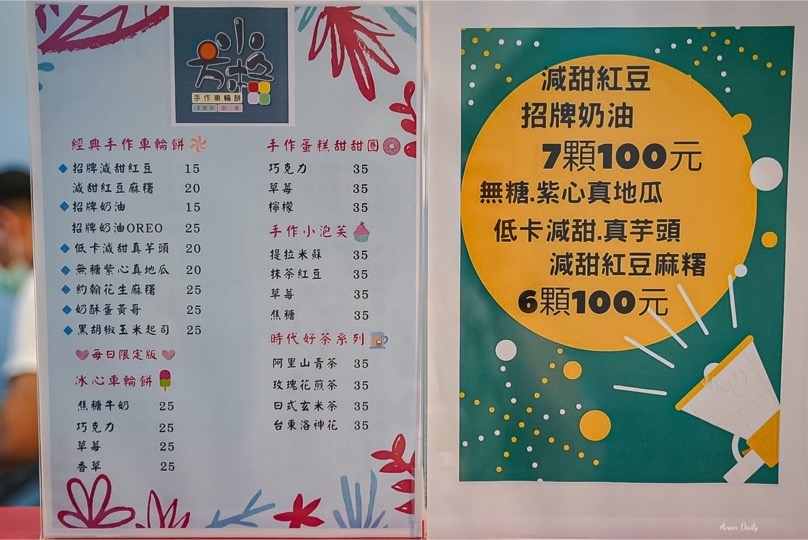 小方格
手作車輪餅
經典手作車輪餅
招牌減甜紅豆 15
減甜紅豆麻糬 20
招牌奶油 15
招牌奶油OREO 25
低卡減甜真芋頭 20
無糖紫心真地瓜 20
約翰花生麻糬 25
奶酥蛋黃哥 25
黑胡椒玉米起司 25
每日限定版
冰心車輪餅
焦糖牛奶 25
巧克力 25
草莓 25
香草 25
手作蛋糕甜甜圈
巧克力 35
草莓 35
檸檬 35
手作小泡芙
提拉米蘇 35
抹茶紅豆 35
草莓 35
焦糖 35
時代好茶系列
阿里山青茶 35
玫瑰花煎茶 35
日式玄米茶 35
台東洛神花 35
減甜紅豆
招牌奶油
7顆100元
無糖.紫心真地瓜
低卡減甜.真芋頭
減甜紅豆麻糬
6顆100元
Anan Daily